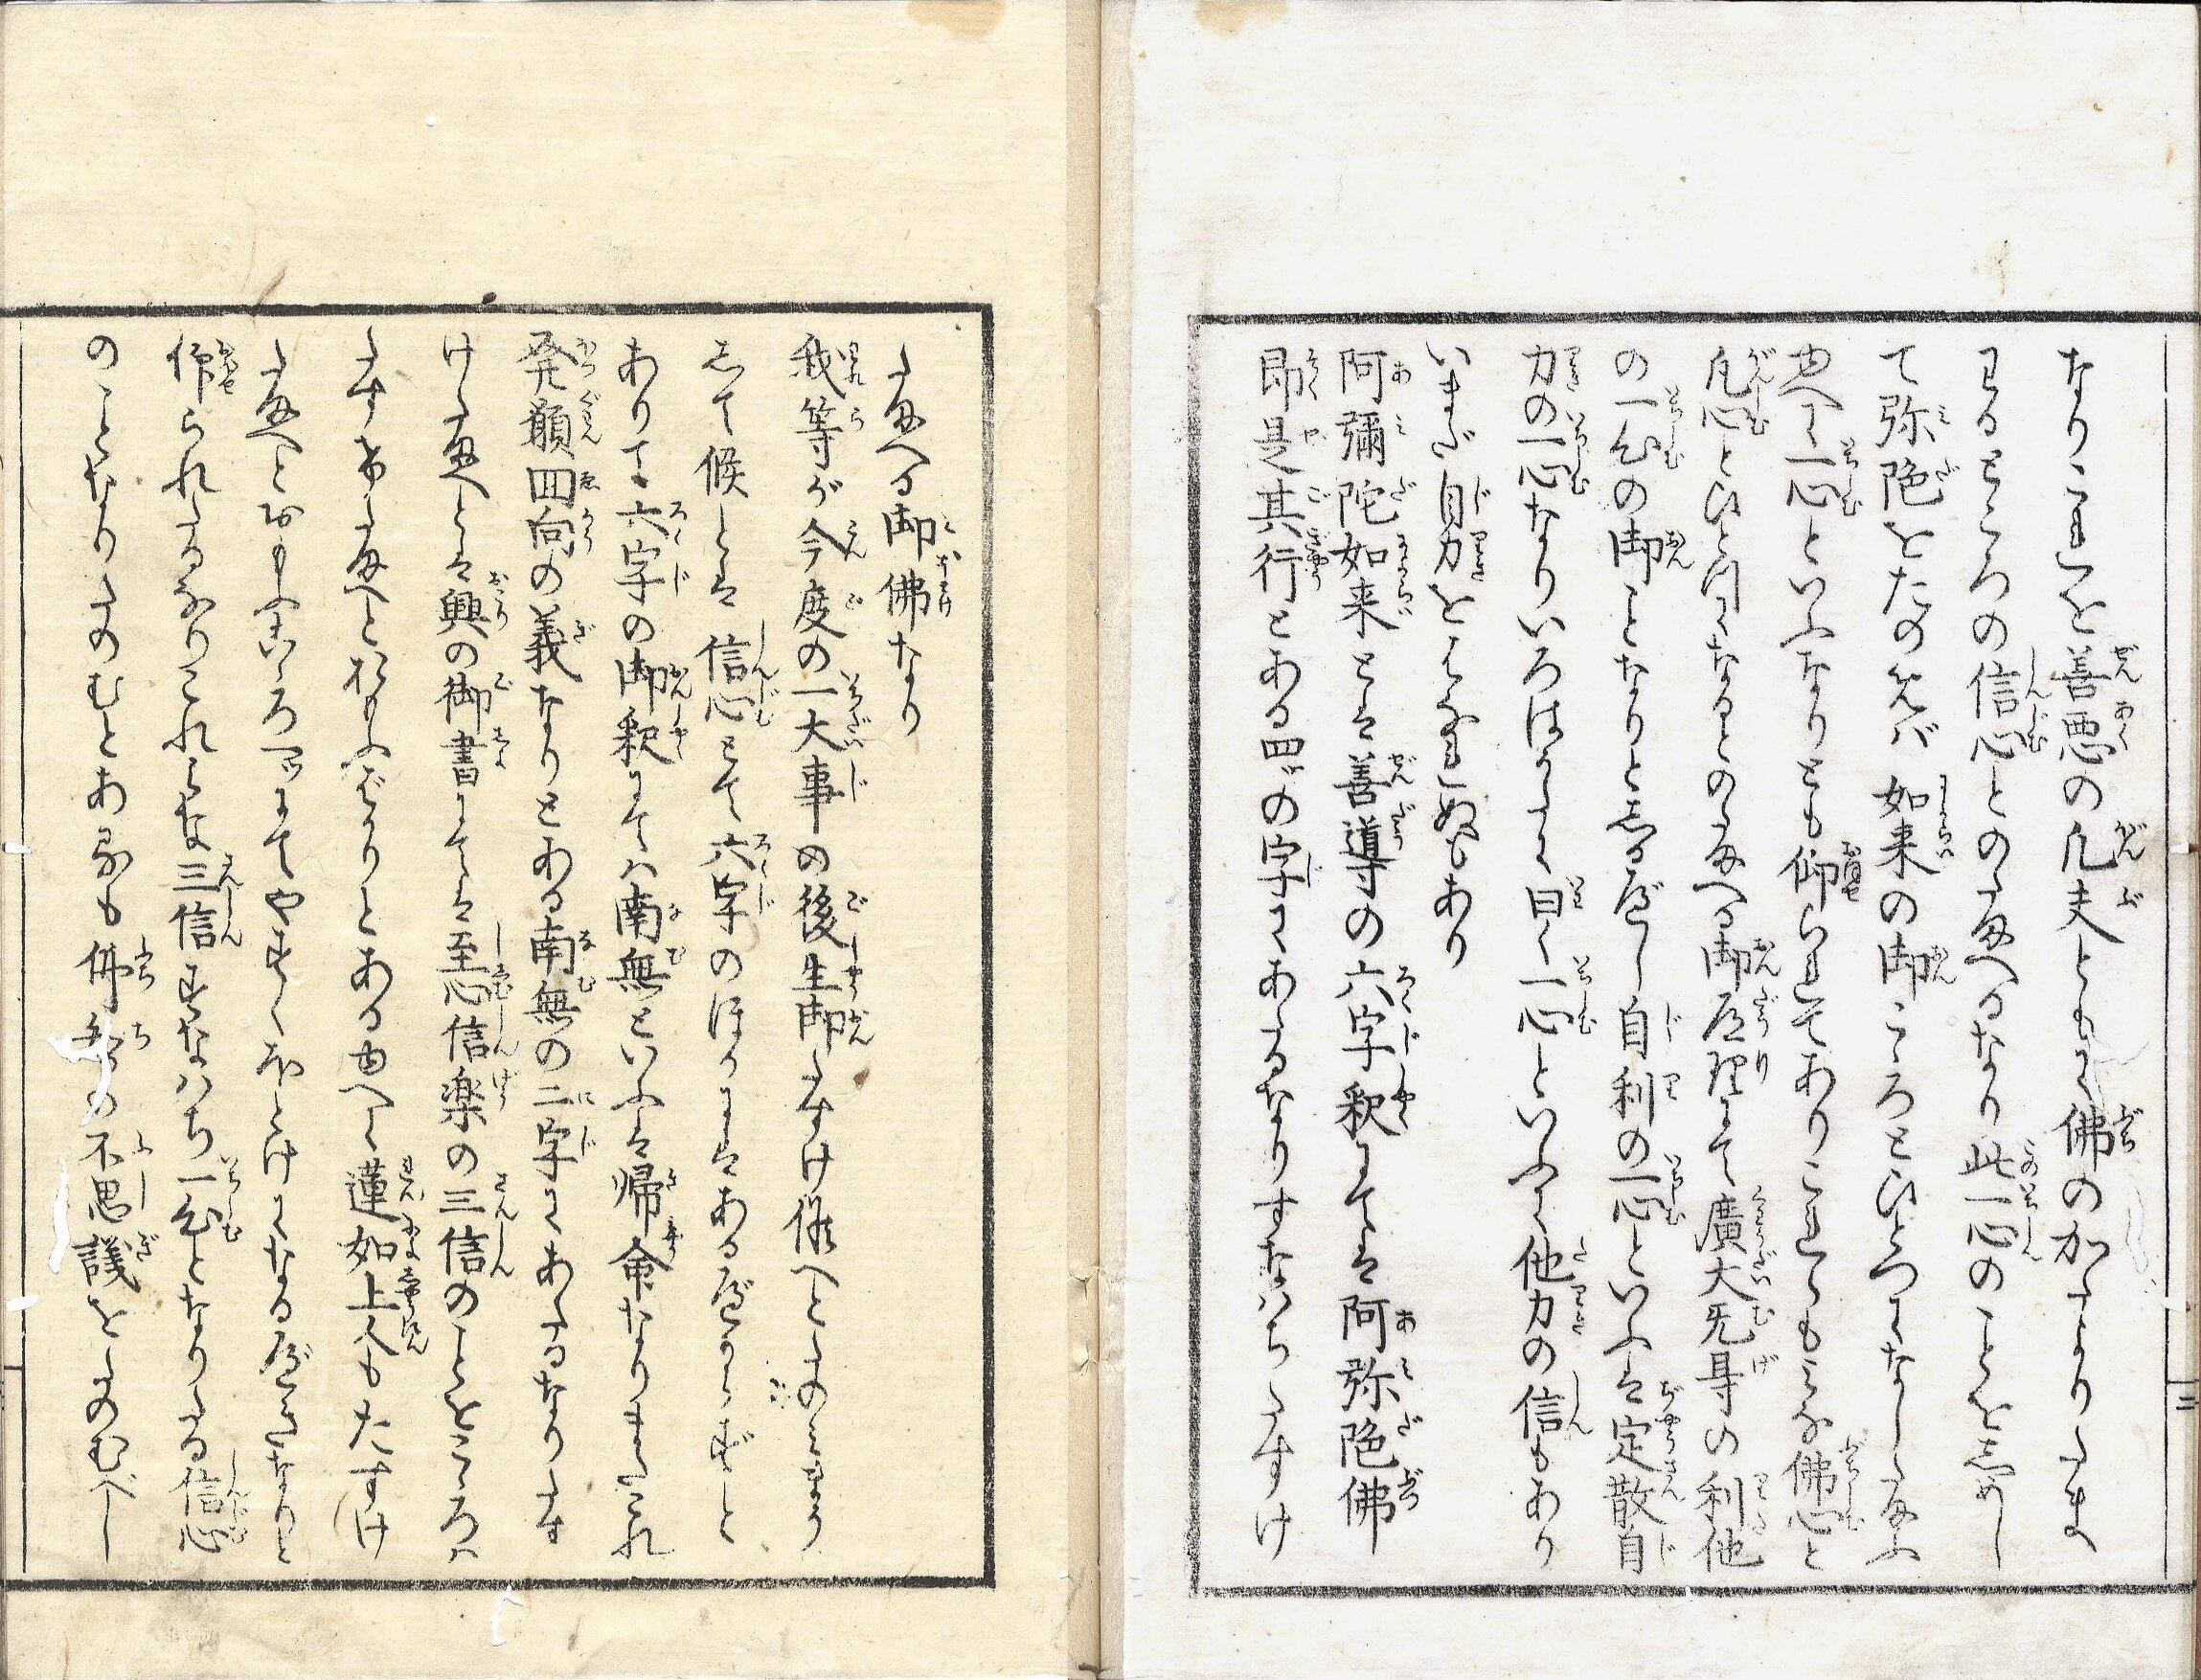 なりこれを善悪の凡夫ともに佛のかたよりたま
わるところの信心とのたまへるなり此一心のことをしめし
て弥陀をたのめバ如来の御こゝろとひとつになしたまふ
也へに一心といふなりとも仰られてありこれらもみな佛心と
凡心とひとつになるとのたまへる御道理にて廣大无㝵の利他
の一心の御ことなりとしるべし自利の一心といふは定散自
力の一心なりいろはかたく曰く一心といふに他力の信もあり
いまだ自力をはなれぬもあり
阿彌陀如来とは善導の六字釈にては阿弥陀佛
即是其行とある四ツの字にあたるなりすなハちたすけ
たまへる御佛なり
我等が今度の一大事の後生御たすけ候へとたのみまう
して候とは信心にて六字のほかにはあるべからずと
ありては六字の御釈にてハ南無といふは帰命なりまたこれ
発願回向の義なりとある南無の二字にあたるなりたす
けたまへとは興の御書にては至心信楽の三信のことをこゝろハ
たすけたまへとおもふばかりとある由へに蓮如上人もたすけ
たまへとおもふこゝろ一ツにてやすくほとけになるべきなりと
仰られたるなりこれらな三信すなハち一心となりたる信心
のことなりたのむとあるも佛智の不思議をたのむべし